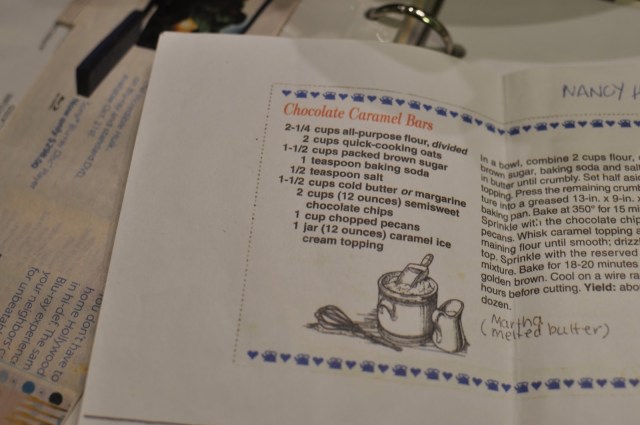 NANCY H
Chocolate Caramel Bars
2-1/4 cups all-purpose flour, divided
2 cups quick-cooking oats
1-1/2 cups packed brown sugar
1 teaspoon baking soda
1/2 teaspoon salt
1-1/2 cups cold butter or margarine
2 cups (12 ounces) semisweet
chocolate chips
1 cup chopped pecans
1 jar (12 ounces) caramel ice
cream topping
In a bowl, combine 2 cups flour,
brown sugar, baking soda and salt
in butter until crumbly. Set half asid
topping. Press the remaining crum
ture into a greased 13-in. x 9-in. x
baking pan. Bake at 350° for 15 mi
Sprinkle with the chocolate chip
pecans. Whisk caramel topping a
maining flour until smooth; drizzl
top. Sprinkle with the reserved
mixture. Bake for 18-20 minutes
golden brown. Cool on a wire ra
hours before cutting. Yield: abo
dozen.
(Martha
melted butter)
you don't have to
home Hollywood
in hi-def. The sam
Blu-ray experienc
your neighbors'
for unbeatable